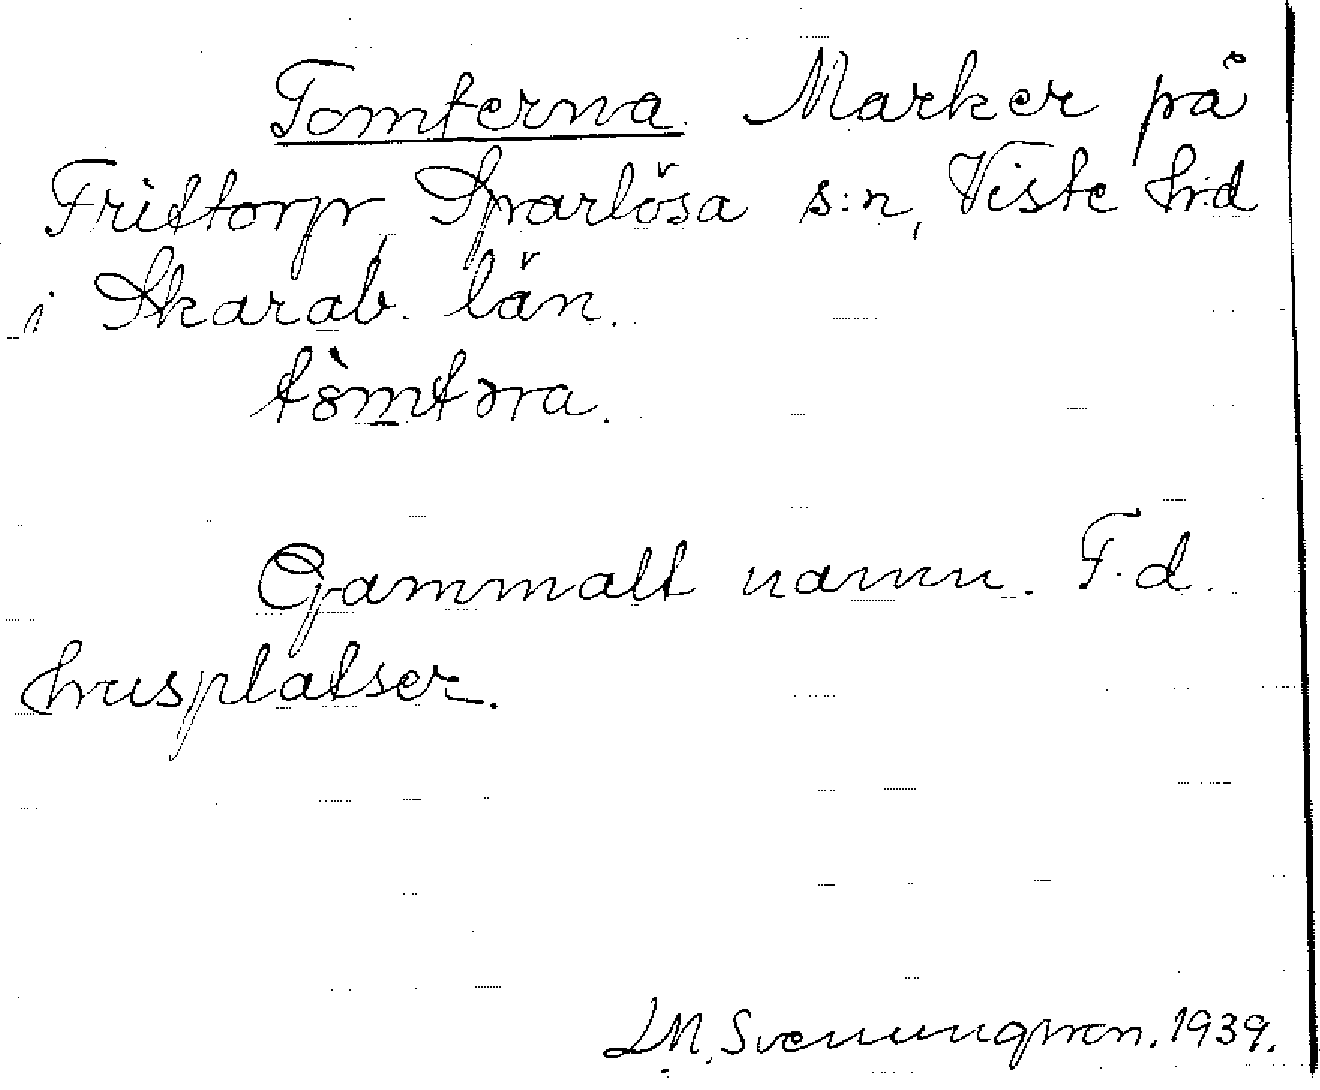 Tomterna. Marker på
Frittorp, Sparlösa s:n, Viste h:d
i Skarab. län.
tòmtəra.
Gammalt namn. F.d.
husplatser.
LM. Svenungsson. 1939.